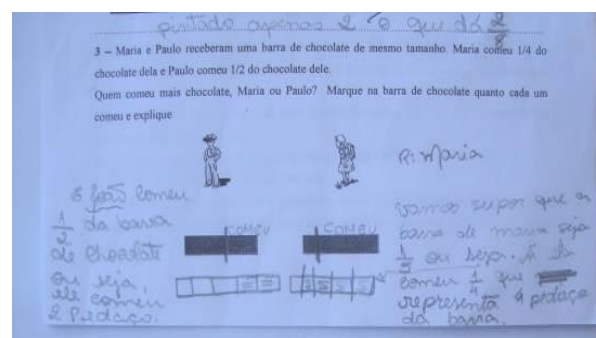 pintado apenas 2 o que dá 2/8
3 – Maria e Paulo receberam uma barra de chocolate de mesmo tamanho. Maria comeu 1/4 do
chocolate dela e Paulo comeu 1/2 do chocolate dele.
Quem comeu mais chocolate, Maria ou Paulo? Marque na barra de chocolate quanto cada um
comeu e explique
R: Maria
E João comeu
1/2 da barra
de chocolate
ou seja,
ele comeu
2 Pedaço.
COMEU
COMEU
vamos supor que a
barra de maria seja
1/5 ou seja.
comeu 1/4 que
representa 4 pedaço
da barra.